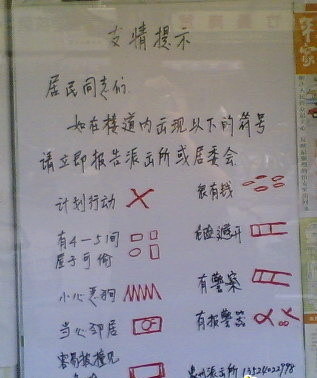 友情提示
居民同志们
如在楼道内出现以下的符号
请立即报告派出所或居委会
计划行动
很有钱
有4-5间
屋子可偷
有警察
小心恶狗
有报警器
当心邻居
容易被撞见
派出所 13524022778